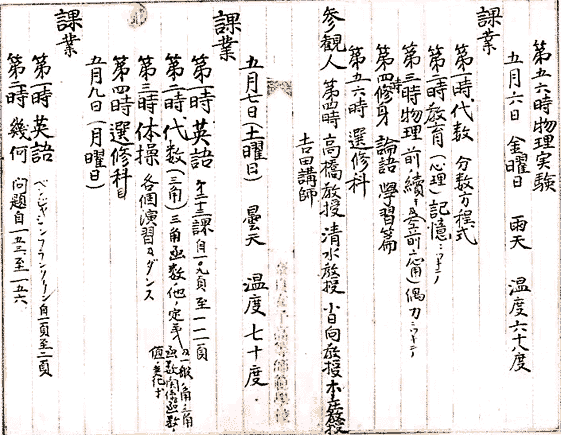 第五六時物理実験
五月六日 金曜日 雨天 温度六十八度
課業
第一時代数 分数方程式
第二時教育(心理)記憶ニツキテ
第三時物理 前ノ續キ及至前ノ應用 偶力ニツキテ
第四時修身 論語 學習篇
第五六時 選修科
参観人 第四時 高橋教授 清水教授 小日向教授 本庄教授
吉田講師
五月七日(土曜日) 曇天 温度七十度
課業
第一時 英語 第二十三課 自一〇九頁至一一二頁
第二時 代数(三角) 三角函数ノ他ノ定義 及一般ノ角ノ三角函数 値ノ変化
第三時 体操 各個演習及ダンス
第四時 選修科目
五月九日(月曜日)
課業
第一時 英語 ベンジャミンフランクリン 自一頁至三頁
第二時 幾何 問題自一五三至一五六